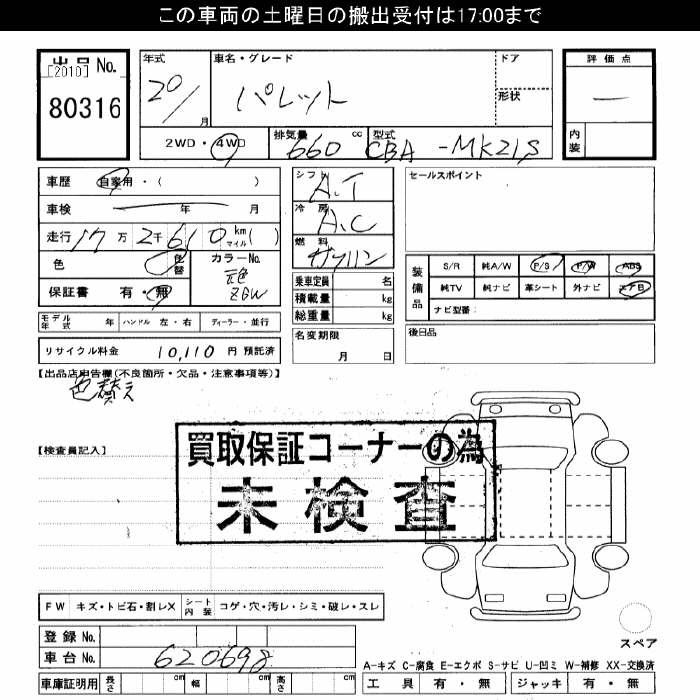 この車両の土曜日の搬出受付は17:00まで
出品 No.
[2010]
80316
年式
20/
月
車名・グレード
パレット
ドア
形状
評価点
―
内装
2WD・4WD
排気量
660 cc
型式
CBA-MK21S
車歴 自家用・( )
車検 年 月
走行 17万2千610 km マイル( )
色 色替
カラーNo.
ZGW
保証書 有・無
シフト
A.T
冷房
A.C
燃料
ガソリン
乗車定員 名
積載量 kg
総重量 kg
セールスポイント
装備品
S/R 純A/W P/S P/W ABS
純TV 純ナビ 革シート 外ナビ エアB
ナビ型番:
モデル年式 年 ハンドル 左・右 ディーラー・並行
名変期限
月 日
後日品
リサイクル料金 10,110 円 預託済
【出品店申告欄(不良箇所・欠品・注意事項等)】
色替え
買取保証コーナーの為
未検査
【検査員記入】
FW キズ・トビ石・割レX シート内装 コゲ・穴・汚レ・シミ・破レ・スレ
登録 No.
車台 No. 620698
車庫証明用 長さ cm 幅 cm 高さ cm
スペア
A-キズ C-腐食 E-エクボ S-サビ U-凹ミ W-補修 XX-交換済
工具 有・無 ジャッキ 有・無